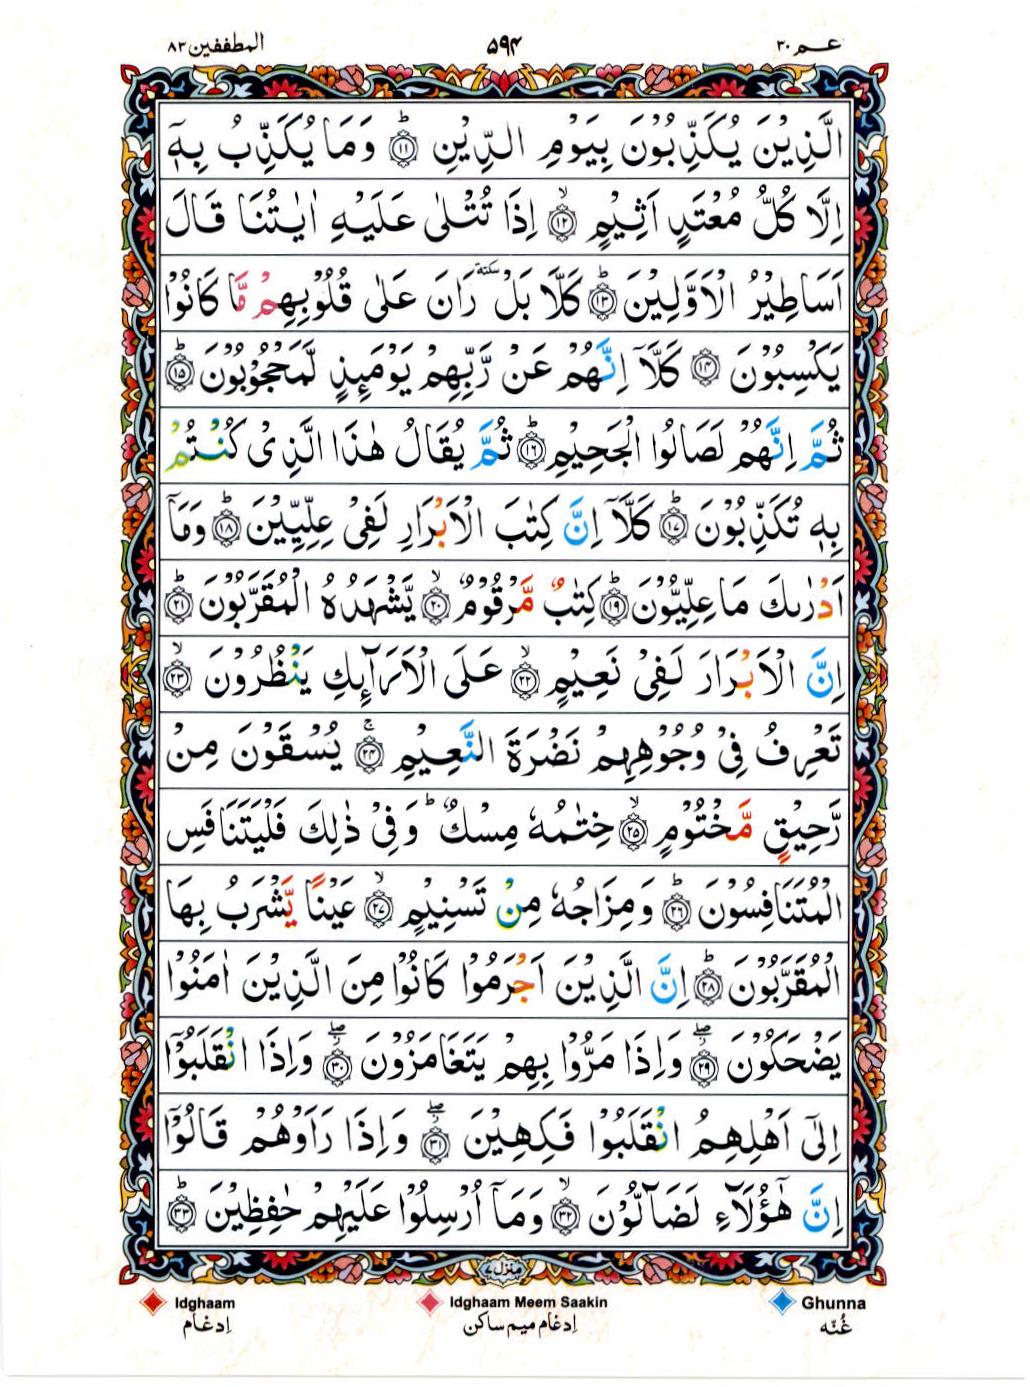 عـم ٣٠ ٥٩٤ المطففين ٨٣
الَّذِيْنَ يُكَذِّبُوْنَ بِيَوْمِ الدِّيْنِ ؕ ﴿۱۱﴾ وَمَا يُكَذِّبُ بِهٖۤ
اِلَّا كُلُّ مُعْتَدٍ اَثِيْمٍ ۙ ﴿۱۲﴾ اِذَا تُتْلٰى عَلَيْهِ اٰيٰتُنَا قَالَ
اَسَاطِيْرُ الْاَوَّلِيْنَ ؕ ﴿۱۳﴾ كَلَّا بَلْ ٚ سكتة رَانَ عَلٰى قُلُوْبِهِمْ مَّا كَانُوْا
يَكْسِبُوْنَ ﴿۱۴﴾ كَلَّاۤ اِنَّهُمْ عَنْ رَّبِّهِمْ يَوْمَىِٕذٍ لَّمَحْجُوْبُوْنَ ؕ ﴿۱۵﴾
ثُمَّ اِنَّهُمْ لَصَالُوا الْجَحِيْمِ ؕ ﴿۱۶﴾ ثُمَّ يُقَالُ هٰذَا الَّذِىْ كُنْتُمْ
بِهٖ تُكَذِّبُوْنَ ؕ ﴿۱۷﴾ كَلَّاۤ اِنَّ كِتٰبَ الْاَبْرَارِ لَفِىْ عِلِّيِّيْنَ ؕ ﴿۱۸﴾ وَمَاۤ
اَدْرٰىكَ مَا عِلِّيُّوْنَ ؕ ﴿۱۹﴾ كِتٰبٌ مَّرْقُوْمٌ ۙ ﴿۲۰﴾ يَّشْهَدُهُ الْمُقَرَّبُوْنَ ؕ ﴿۲۱﴾
اِنَّ الْاَبْرَارَ لَفِىْ نَعِيْمٍ ۙ ﴿۲۲﴾ عَلَى الْاَرَآىِٕكِ يَنْظُرُوْنَ ۙ ﴿۲۳﴾
تَعْرِفُ فِىْ وُجُوْهِهِمْ نَضْرَةَ النَّعِيْمِ ۚ ﴿۲۴﴾ يُسْقَوْنَ مِنْ
رَّحِيْقٍ مَّخْتُوْمٍ ۙ ﴿۲۵﴾ خِتٰمُهٗ مِسْكٌ ؕ وَفِىْ ذٰلِكَ فَلْيَتَنَافَسِ
الْمُتَنَافِسُوْنَ ؕ ﴿۲۶﴾ وَمِزَاجُهٗ مِنْ تَسْنِيْمٍ ۙ ﴿۲۷﴾ عَيْنًا يَّشْرَبُ بِهَا
الْمُقَرَّبُوْنَ ؕ ﴿۲۸﴾ اِنَّ الَّذِيْنَ اَجْرَمُوْا كَانُوْا مِنَ الَّذِيْنَ اٰمَنُوْا
يَضْحَكُوْنَ ۖ ﴿۲۹﴾ وَاِذَا مَرُّوْا بِهِمْ يَتَغَامَزُوْنَ ۖ ﴿۳۰﴾ وَاِذَا انْقَلَبُوْۤا
اِلٰٓى اَهْلِهِمُ انْقَلَبُوْا فَكِهِيْنَ ۖ ﴿۳۱﴾ وَاِذَا رَاَوْهُمْ قَالُوْۤا
اِنَّ هٰٓؤُلَآءِ لَضَآلُّوْنَ ۙ ﴿۳۲﴾ وَمَاۤ اُرْسِلُوْا عَلَيْهِمْ حٰفِظِيْنَ ؕ ﴿۳۳﴾
منزل ۷
Idghaam Idghaam Meem Saakin Ghunna
اِدغَام اِدغَام مِيم سَاكن غُنّه